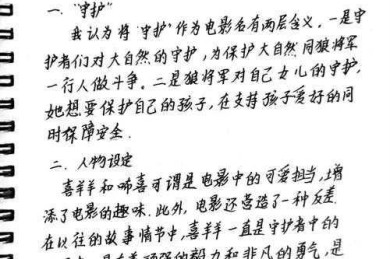 一."守护"
我认为将"守护"作为电影名有两层含义.一是守
护者们对大自然的守护,为保护大自然同狼将军
一行人做斗争。二是狼将军对自己女儿的守护,
她想要保护自己的孩子,在支持孩子爱好的同
时保障安全.
二.人物设定
喜羊羊和沸喜可谓是电影中的可爱担当,增
添了电影的趣味.此外,电影还营造了一种反差
在以往的故事情节中,喜羊羊一直是守护者中的
顽强的毅力和非凡的勇气,是